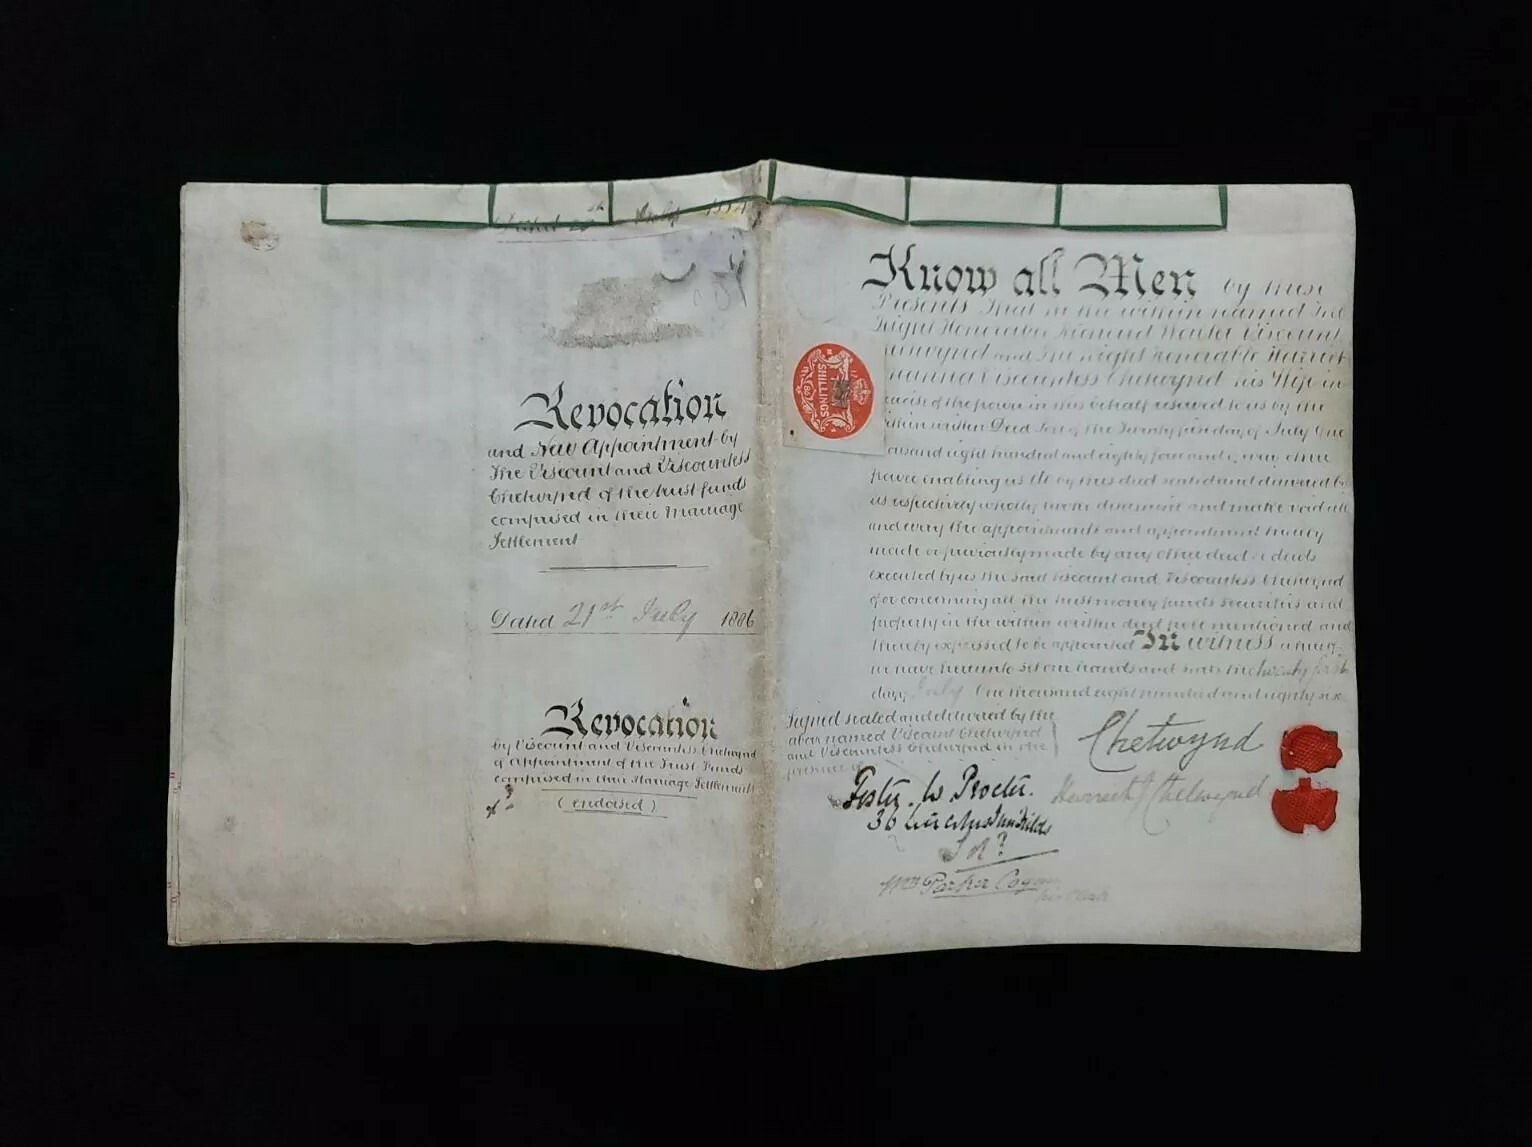 Dated 21st July 1884
Revocation
and New Appointment by
The Viscount and Viscountess
Chetwynd of the trust funds
comprised in their Marriage
Settlement
Dated 21st July 1886
Revocation
by Viscount and Viscountess Chetwynd
of appointment of the Trust Funds
comprised in their Marriage Settlement
(endorsed)
SHILLINGS
Know all Men by these
Presents That we the within named The
Right Honorable Richard Walter Viscount
Chetwynd and The Right Honorable Harriet
Viscountess Chetwynd his Wife in
of the power in this behalf reserved to us by the
within written Deed Poll of the Twenty first day of July One
thousand eight hundred and eighty four and every other
power enabling us Do by this deed sealed and delivered by
us respectively wholly revoke determine and make void all
and every the appointments and appointment hereby
made or previously made by any other deed or deeds
executed by us the said Viscount and Viscountess Chetwynd
of or concerning all the trust money funds securities and
property in the within written deed poll mentioned and
thereby expressed to be appointed In witness whereof
we have hereunto set our hands and seals the twenty first
day of July One thousand eight hundred and eighty six
Signed sealed and delivered by the
above named Viscount Chetwynd
and Viscountess Chetwynd in the
presence of
Chetwynd
Harriet J Chetwynd
Foster W Procter.
36 Lincolns Inn Fields
Solr
Parker